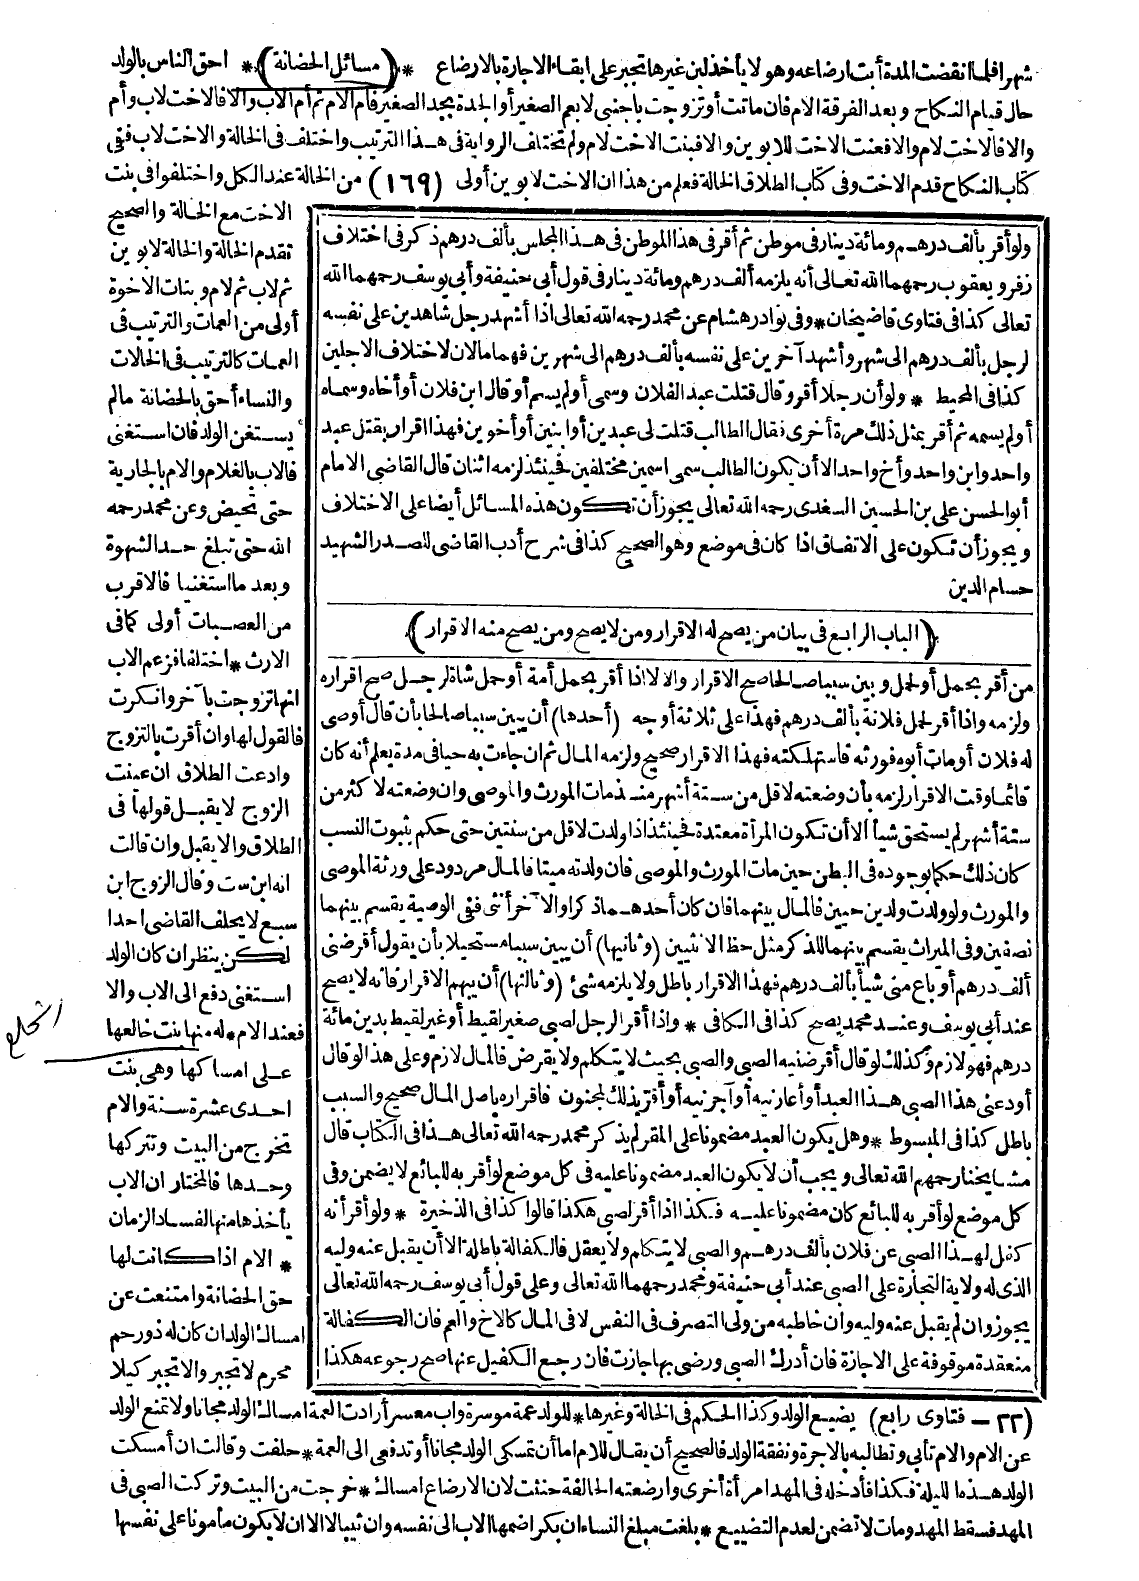 شهر افلما انقضت المدة أبت ارضاعه وهو لا يأخذ لبن غيرها تجبر على ابقاء الاجارة بالارضاع * (مسائل الحضانة) * احق الناس بالولد
حال قيام النكاح وبعد الفرقة الام فان ماتت أو تزوجت باجنبي لا بعم الصغير أو الجدة بجد الصغير فأم الام ثم أم الاب والا فالاخت لاب وأم
والا فالاخت لام والا فبنت الاخت للابوين والا فبنت الاخت لام ولم تختلف الرواية فى هذا الترتيب واختلف فى الخالة والاخت لاب ففى
كتاب النكاح قدم الاخت وفى كتاب الطلاق الخالة فعلم من هذا ان الاخت لابوين أولى (١٦٩) من الخالة عند الكل واختلفوا فى بنت
الاخت مع الخالة والصحيح
تقدم الخالة والخالة لابوين
ثم لاب ثم لام وبنات الاخوة
أولى من العمات والترتيب فى
العمات كالترتيب فى الخالات
والنساء أحق بالحضانة مالم
يستغن الولد فان استغنى
فالاب بالغلام والام بالجارية
حتى تحيض وعن محمد رحمه
الله حتى تبلغ حد الشهوة
وبعد ما استغنيا فالاقرب
من العصبات أولى كما فى
الارث * اختلفا فزعم الاب
انها تزوجت بآخر وانكرت
فالقول لها وان أقرت بالتزوج
وادعت الطلاق ان عينت
الزوج لا يقبل قولها فى
الطلاق والا يقبل وان قالت
انه ابن ست وقال الزوج ابن
سبع لا يحلف القاضى احدا
لكن ينظر ان كان الولد
استغنى دفع الى الاب والا
فعند الام * له منها بنت خالعها
على امساكها وهى بنت
احدى عشرة سنة والام
تخرج من البيت وتتركها
وحدها فالمختار ان الاب
يأخذها منها لفساد الزمان
* الام اذا كانت لها
حق الحضانة وامتنعت عن
امساك الولد ان كان له ذو رحم
محرم لا تجبر والا تجبر كيلا
ولو أقر بألف درهم ومائة دينار فى موطن ثم أقر فى هذا الموطن فى هذا المجلس بألف درهم ذكر فى اختلاف
زفر ويعقوب رحمهما الله تعالى أنه يلزمه ألف درهم ومائة دينار فى قول أبى حنيفة وأبى يوسف رحمهما الله
تعالى كذا فى فتاوى قاضيخان * وفى نوادر هشام عن محمد رحمه الله تعالى اذا أشهد رجل شاهدين على نفسه
لرجل بألف درهم الى شهر وأشهد آخرين على نفسه بألف درهم الى شهرين فهما مالان لاختلاف الاجلين
كذا فى المحيط * ولو أن رجلا أقر وقال قتلت عبد الفلان وسمى أولم يسم أو قال ابن فلان أو أخاه وسماه
أولم يسمه ثم أقر بمثل ذلك مرة أخرى فقال الطالب قتلت لى عبدين أو ابنين أو أخوين فهذا اقرار بقتل عبد
واحد وابن واحد وأخ واحد الا أن يكون الطالب سمى اسمين مختلفين فحينئذ لزمه اثنان قال القاضى الامام
أبو الحسن على بن الحسين السغدى رحمه الله تعالى يجوز أن تكون هذه المسائل أيضا على الاختلاف
ويجوز أن تكون على الاتفاق اذا كان فى موضع وهو الصحيح كذا فى شرح أدب القاضى للصدر الشهيد
حسام الدين
(الباب الرابع فى بيان من يصح له الاقرار ومن لا يصح ومن يصح منه الاقرار)
من أقر بحمل أو لحمل وبين سببا صالحا صح الاقرار والا لا اذا أقر بحمل أمة أو حمل شاة لرجل صح اقراره
ولزمه واذا أقر لحمل فلانة بألف درهم فهذا على ثلاثة أوجه (أحدها) أن يبين سببا صالحا بأن قال أوصى
له فلان أو مات أبوه فورثه فاستهلكته فهذا الاقرار صحيح ولزمه المال ثم ان جاءت به حيا فى مدة يعلم أنه كان
قائما وقت الاقرار لزمه بأن وضعته لاقل من ستة أشهر منذ مات المورث والموصى وان وضعته لاكثر من
ستة أشهر لم يستحق شيأ الا أن تكون المرأة معتدة فحينئذ اذا ولدت لاقل من سنتين حتى حكم بثبوت النسب
كان ذلك حكما بوجوده فى البطن حين مات المورث والموصى فان ولدته ميتا فالمال مردود على ورثة الموصى
والمورث ولو ولدت ولدين حيين فالمال بينهما فان كان أحدهما ذكرا والآخر أنثى ففى الوصية يقسم بينهما
نصفين وفى الميراث يقسم بينهما للذكر مثل حظ الانثيين (وثانيها) أن يبين سببا مستحيلا بأن يقول أقرضنى
ألف درهم أو باع منى شيأ بألف درهم فهذا الاقرار باطل ولا يلزمه شئ (وثالثها) أن يبهم الاقرار فانه لا يصح
عند أبى يوسف وعند محمد يصح كذا فى الكافى * واذا أقر الرجل لصبى صغير لقيط أو غير لقيط بدين مائة
درهم فهو لازم وكذلك لو قال أقرضنيه الصبى والصبى بحيث لا يتكلم ولا يقرض فالمال لازم وعلى هذا لو قال
أودعنى هذا الصبى هذا العبد أو أعارنيه أو آجرنيه أو أقر بذلك لمجنون فاقراره باصل المال صحيح والسبب
باطل كذا فى المبسوط * وهل يكون العبد مضمونا على المقر لم يذكر محمد رحمه الله تعالى هذا فى الكتاب قال
مشايخنا رحمهم الله تعالى ويجب أن لا يكون العبد مضمونا عليه فى كل موضع لو أقر به للبائع لا يضمن وفى
كل موضع لو أقر به للبائع كان مضمونا عليه فكذا اذا أقر لصبى هكذا قالوا كذا فى الذخيرة * ولو أقر أنه
كفل لهذا الصبى عن فلان بألف درهم والصبى لا يتكلم ولا يعقل فالكفالة باطلة الا أن يقبل عنه وليه
الذى له ولاية التجارة على الصبى عند أبى حنيفة ومحمد رحمهما الله تعالى وعلى قول أبى يوسف رحمه الله تعالى
يجوز وان لم يقبل عنه وليه وان خاطبه من ولى التصرف فى النفس لا فى المال كالاخ والعم فان الكفالة
منعقدة موقوفة على الاجازة فان أدرك الصبى ورضى بها جازت فان رجع الكفيل عنها صح رجوعه هكذا
(٢٢ - فتاوى رابع) يضيع الولد وكذا الحكم فى الخالة وغيرها * للولد عمة موسرة واب معسر أرادت العمة امساك الولد مجانا ولا تمنع الولد
عن الام والام تأبى وتطالبه بالاجرة ونفقة الولد فالصحيح أن يقال للام اما أن تمسكى الولد مجانا أو تدفعى الى العمة * حلفت وقالت ان أمسكت
الولد هذه الليلة فكذا فأدخله فى المهد امرأة أخرى وارضعته الحالفة حنثت لان الارضاع امساك * خرجت من البيت وتركت الصبى فى
المهد فسقط المهد ومات لا تضمن لعدم التضييع * بلغت مبلغ النساء ان بكرا ضمها الاب الى نفسه وان ثيبا لا الا ان لا يكون مأمونا على نفسها